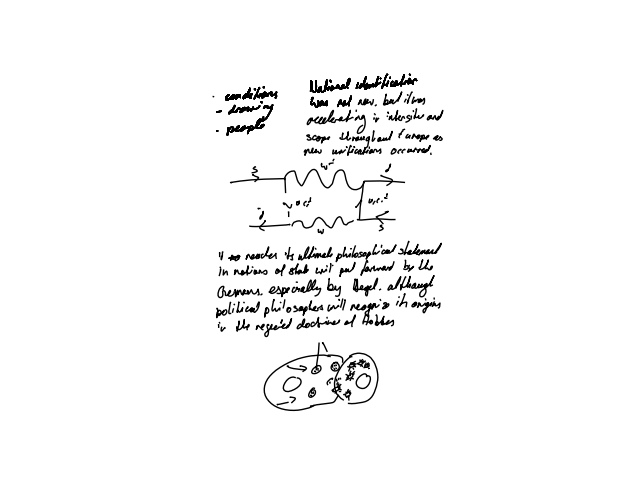 · conditions
- drawing
· people
National identification
was not new, but it was
accelerating in intensity and
scope throughout Europe as
new unifications occurred.
s
W
d
u,c,t
u,c,t
d
W
s
reaches its ultimate philosophical statement
in notions of state put forward by the
Germans, especially by Hegel, although
political philosophers will recognize its origins
in the rejected doctrines of Hobbes